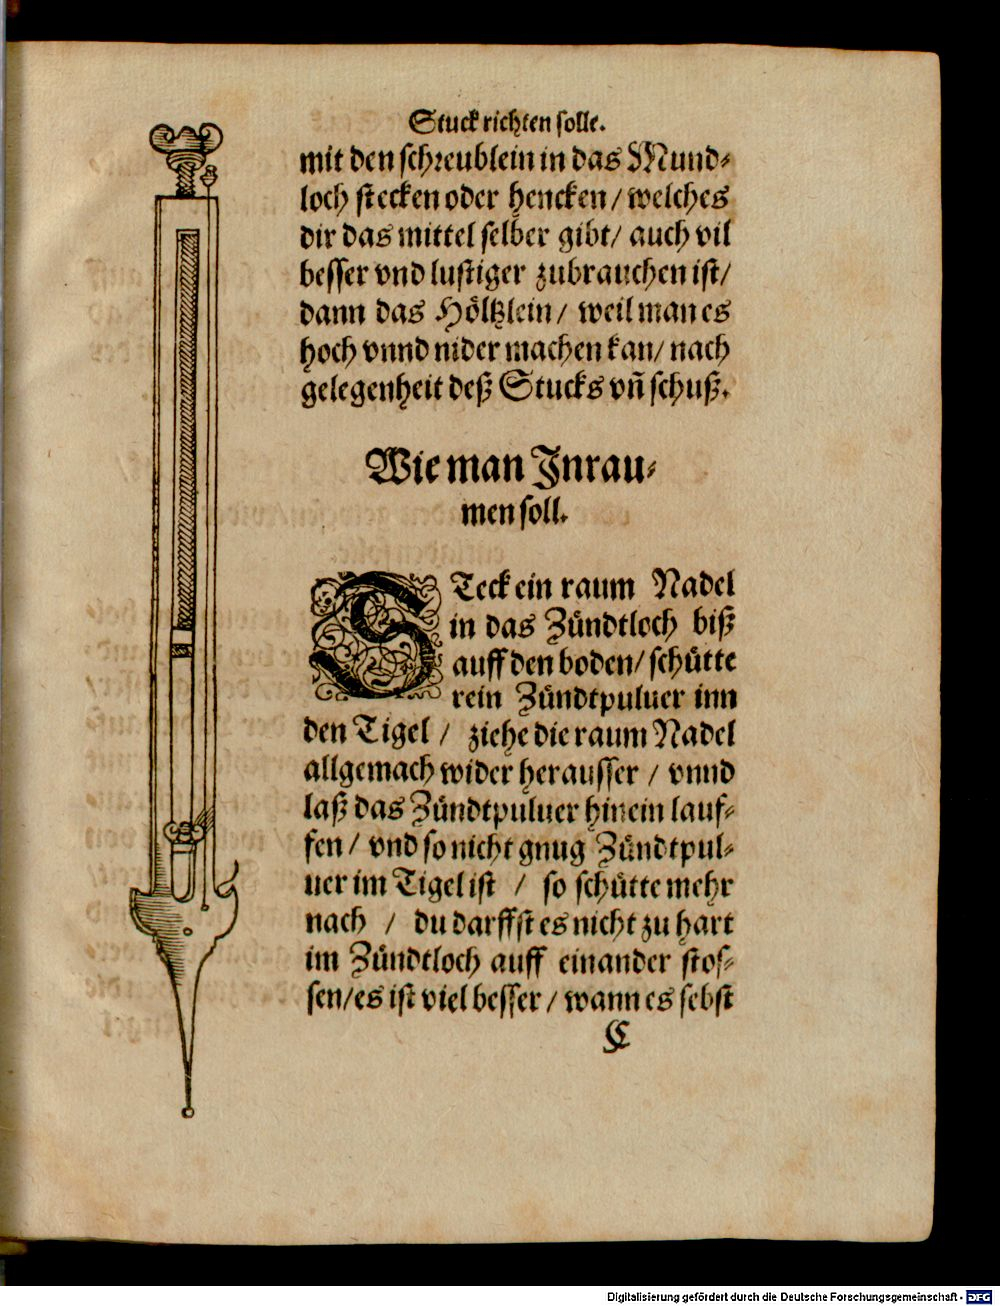 Stuck richten solle.
mit den schreublein in das Mund⸗
loch stecken oder hencken / welches
dir das mittel selber gibt / auch vil
besser vnd lustiger zubrauchen ist /
dann das Höltzlein / weil man es
hoch vnnd nider machen kan / nach
gelegenheit deß Stucks vñ schuß.
Wie man Jnrau⸗
men soll.
STeck ein raum Nadel
in das Zündtloch biß
auff den boden / schütte
rein Zündtpuluer inn
den Tigel / ziehe die raum Nadel
allgemach wider herausser / vnnd
laß das Zündtpuluer hinein lauf⸗
fen / vnd so nicht gnug Zündtpul⸗
uer im Tigel ist / so schütte mehr
nach / du darffst es nicht zu hart
im Zündtloch auff einander stos⸗
sen / es ist viel besser / wann es sebst
C
Digitalisierung gefördert durch die Deutsche Forschungsgemeinschaft - DFG